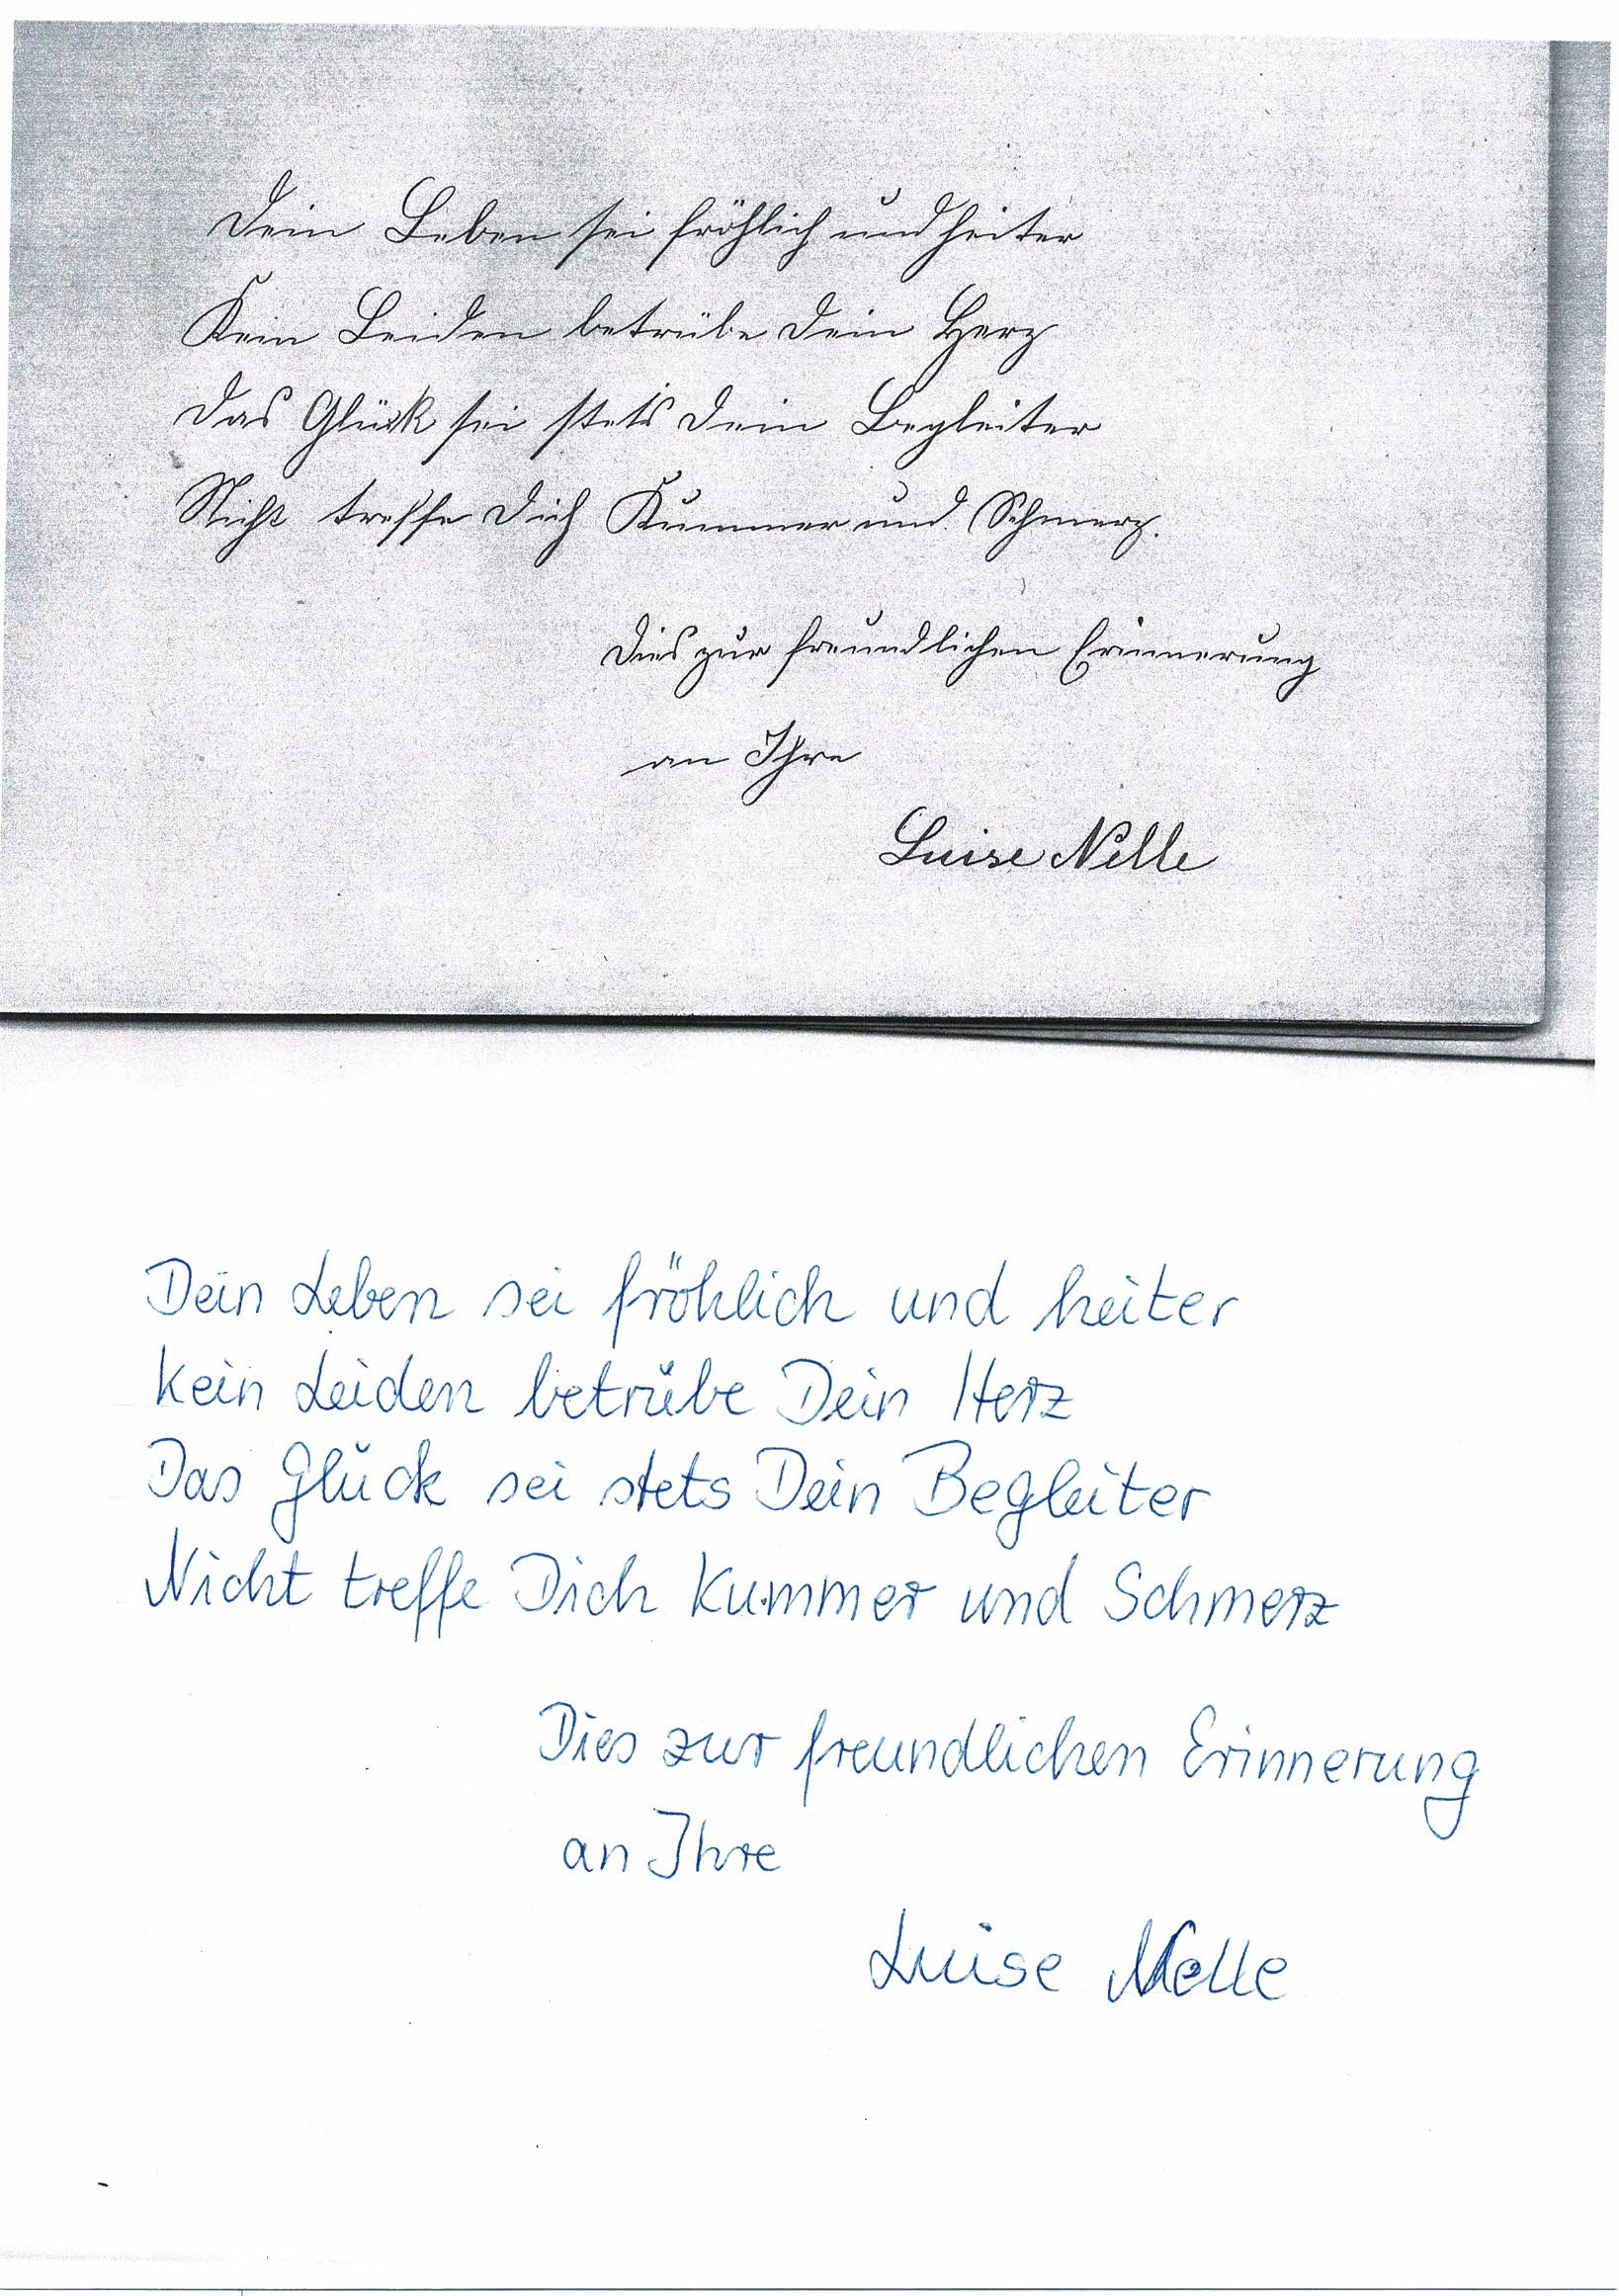 Dein Leben sei fröhlich und heiter
Kein Leiden betrübe Dein Herz
Das Glück sei stets Dein Begleiter
Nicht treffe Dich Kummer und Schmerz.
Dies zur freundlichen Erinnerung
an Ihre
Luise Nelle
Dein Leben sei fröhlich und heiter
kein Leiden betrübe Dein Herz
Das Glück sei stets Dein Begleiter
Nicht treffe Dich Kummer und Schmerz
Dies zur freundlichen Erinnerung
an Ihre
Luise Nelle